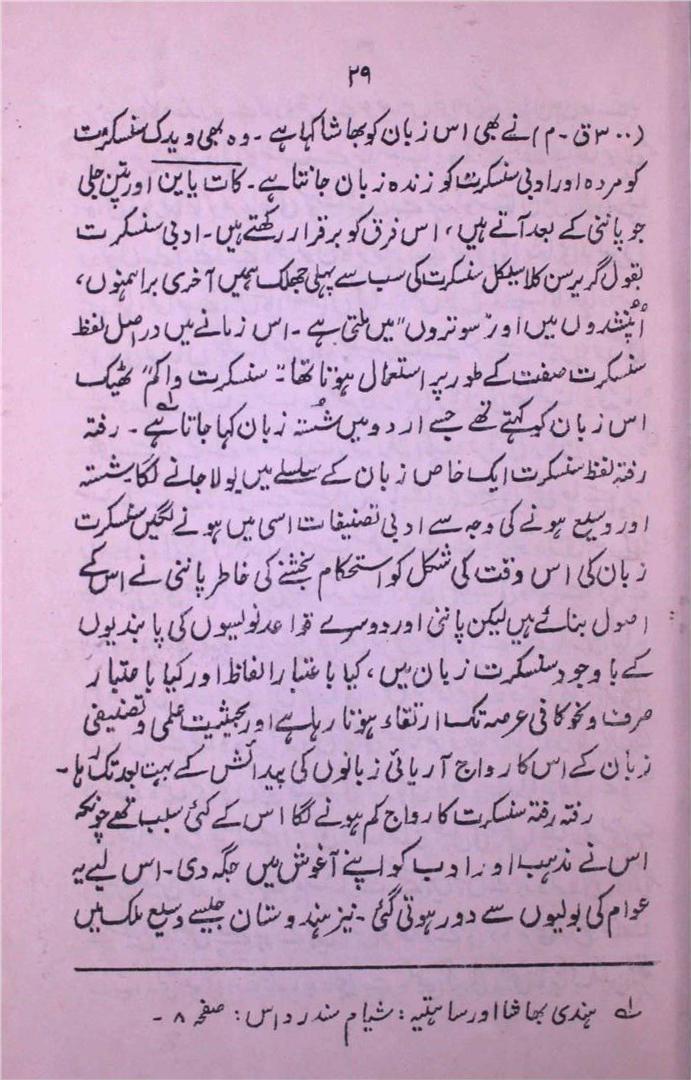 ۲۹
(۳۰۰ ق۔م) نے بھی اس زبان کو بھاشا کہا ہے۔ وہ بھی ویدک سنسکرت
کو مردہ اور ادبی سنسکرت کو زندہ زبان جانتا ہے۔ کات یاین اور پتن جلی
جو پاننی کے بعد آتے ہیں، اس فرق کو برقرار رکھتے ہیں۔ ادبی سنسکرت
بقول گریرسن کلاسیکل سنسکرت کی سب سے پہلی جھلک ہمیں آخری براہمنوں،
اُپنشدوں میں اور "سوتروں" میں ملتی ہے۔ اس زمانے میں دراصل لفظ
سنسکرت صفت کے طور پر استعمال ہوتا تھا۔ "سنسکرت واکم" ٹھیک
اس زبان کو کہتے تھے جسے اردو میں شُستہ زبان کہا جاتا ہے۱؎۔ رفتہ
رفتہ لفظ سنسکرت ایک خاص زبان کے سلسلے میں بولا جانے لگا شستہ
اور وسیع ہونے کی وجہ سے ادبی تصنیفات اسی میں ہونے لگیں سنسکرت
زبان کی اس وقت کی شکل کو استحکام بخشنے کی خاطر پاننی نے اس کے
اصول بنائے ہیں لیکن پاننی اور دوسرے قواعد نویسوں کی پابندیوں
کے باوجود سنسکرت زبان میں، کیا باعتبار الفاظ اور کیا باعتبار
صرف و نحو کافی عرصہ تک ارتقاء ہوتا رہا ہے اور بحیثیت علمی و تصنیفی
زبان کے اس کا رواج آریائی زبانوں کی پیدائش کے بہت بعد تک رہا۔
رفتہ رفتہ سنسکرت کا رواج کم ہونے لگا اس کے کئی سبب تھے چونکہ
اس نے مذہب اور ادب کو اپنے آغوش میں جگہ دی۔ اس لیے یہ
عوام کی بولیوں سے دور ہوتی گئی۔ نیز ہندوستان جیسے وسیع ملک میں
۱؎ ہندی بھاشا اور ساہتیہ: شیام سندر داس: صفحہ ۸۔